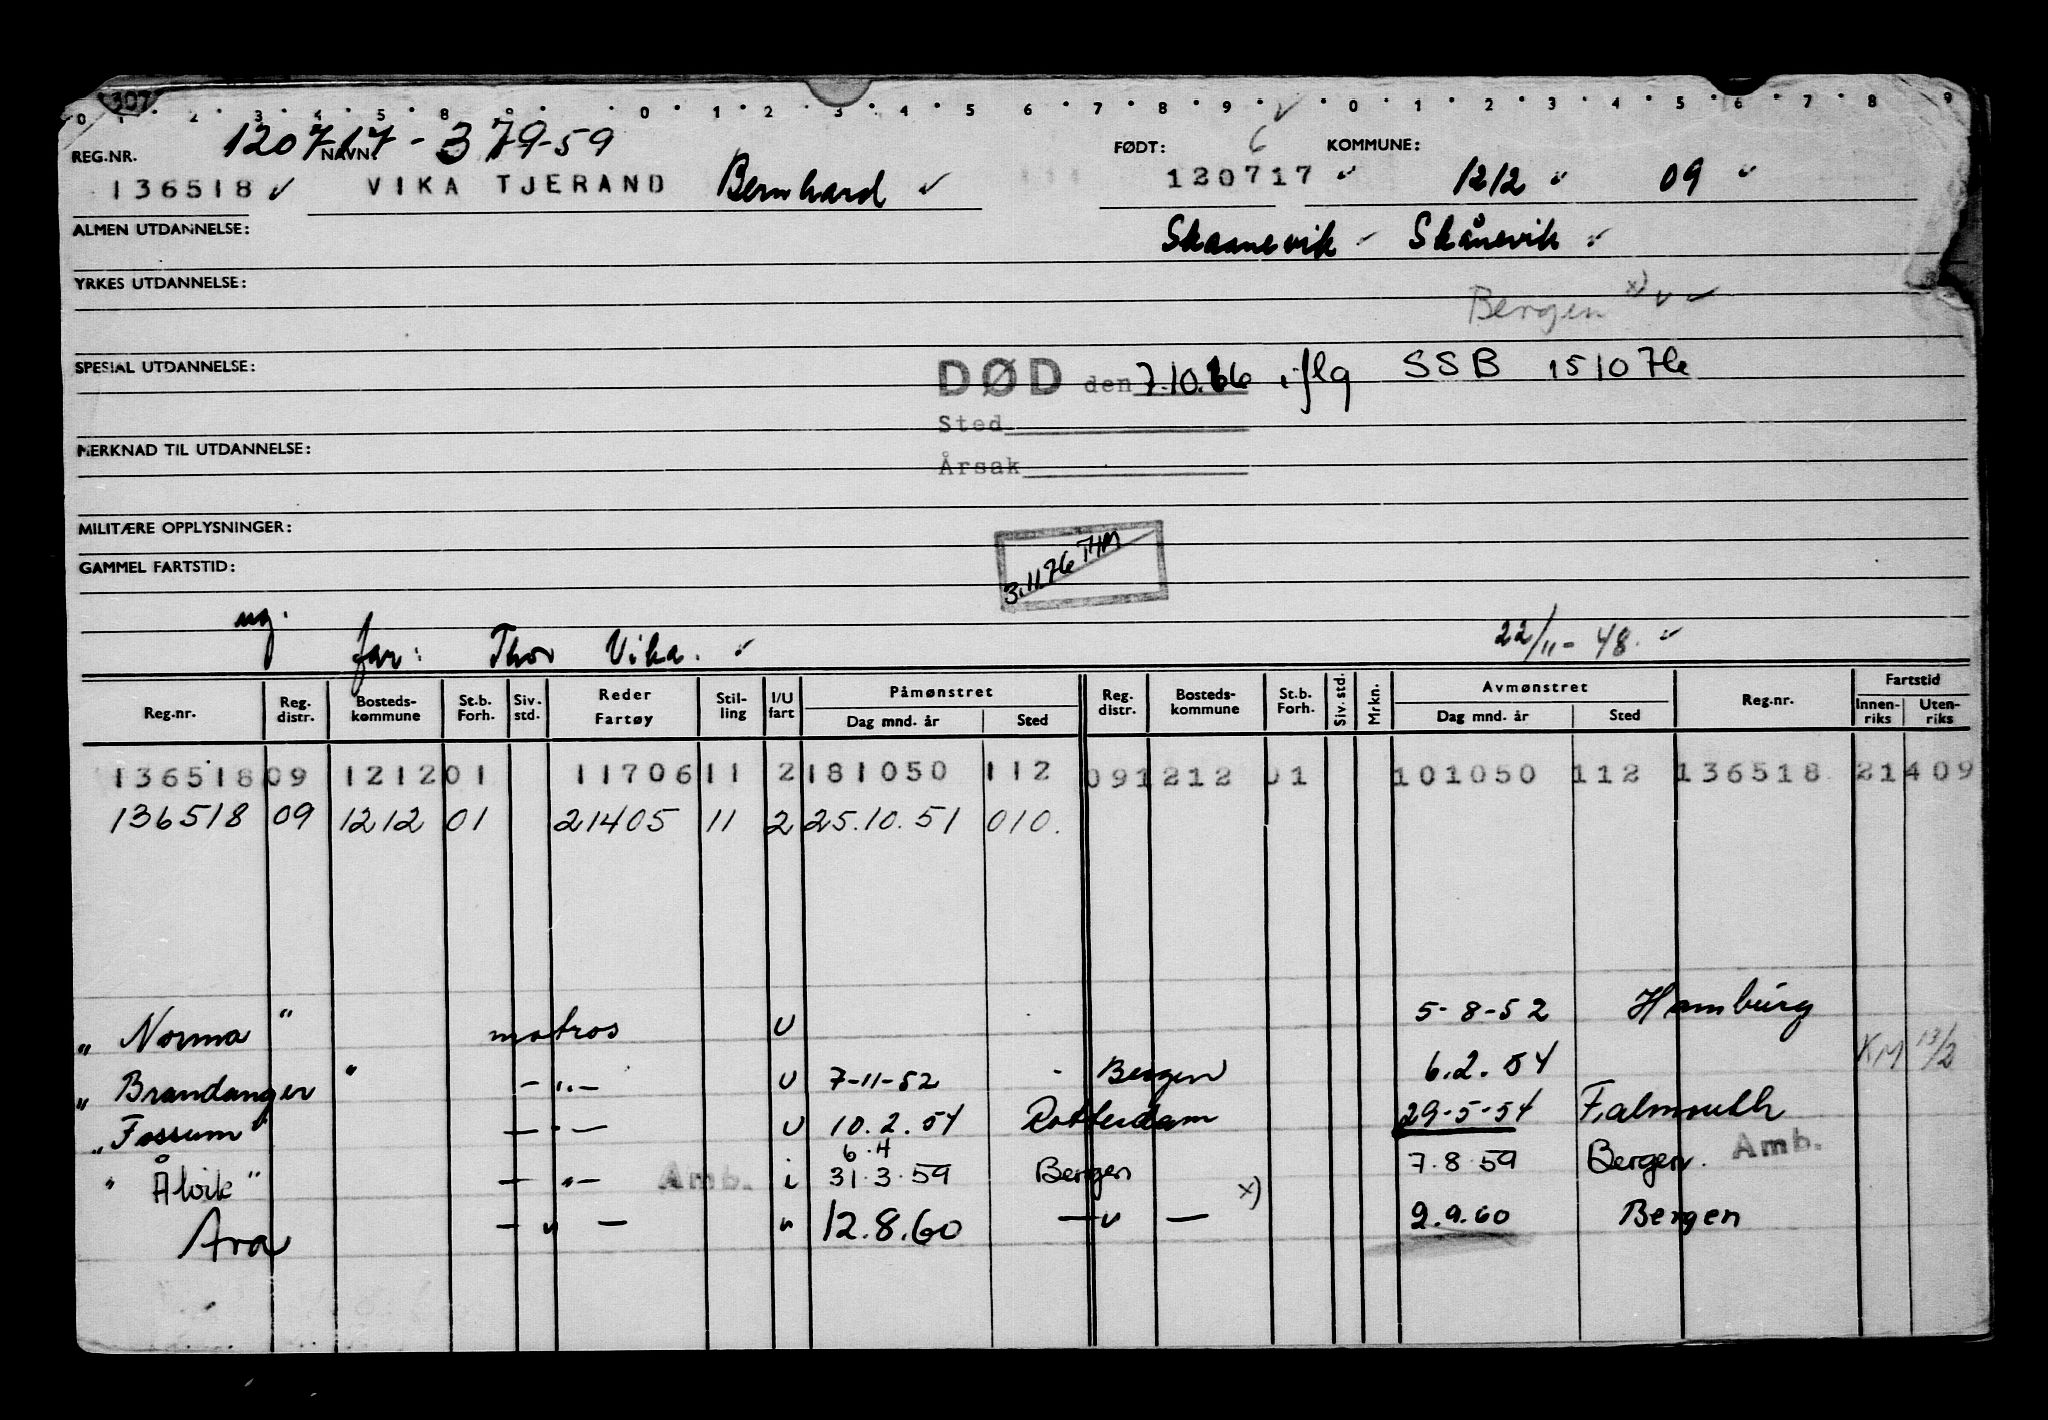 307
0 1 2 3 4 5 8 9 0 1 2 3 4 5 6 7 8 9 0 1 2 3 4 5 6 7 8 9
120717-379-59
REG.NR. NAVN: FØDT: 6 KOMMUNE:
136518 VIKA TJERAND Bernhard 120717 1212 09
ALMEN UTDANNELSE: Skaanevik Skånevik
YRKES UTDANNELSE: Bergen x)
SPESIAL UTDANNELSE: DØD den 7.10.66 iflg SSB 151076
Sted
MERKNAD TIL UTDANNELSE:
Årsak
MILITÆRE OPPLYSNINGER:
3.11.76 THM
GAMMEL FARTSTID:
ug.
far: Thor Vika. 22/11-48.
Reg.nr. Reg. distr. Bosteds-kommune St.b. Forh. Siv. std. Reder Fartøy Stil-ling I/U fart Påmønstret Dag mnd. år Sted Reg. distr. Bosteds-kommune St.b. Forh. Siv. std. Mrkn. Avmønstret Dag mnd. år Sted Reg.nr. Fartstid Innen-riks Uten-riks
136518 09 1212 01 11706 11 2 181050 112 09 1212 01 101050 112 136518 21409
136518 09 1212 01 21405 11 2 25.10.51 010.
" Norma " matros U 5-8-52 Hamburg
" Brandanger " -"- U 7-11-52 - Bergen 6.2.54 KM 13/2
" Fossum " -"- U 10.2.54 Rotterdam 29-5-54 Falmouth
6.4
" Ålvik " -"- Amb. i 31.3.59 Bergen 7.8.59 Bergen. Amb.
Ara -"- " 12.8.60 -"- x) 2.9.60 Bergen